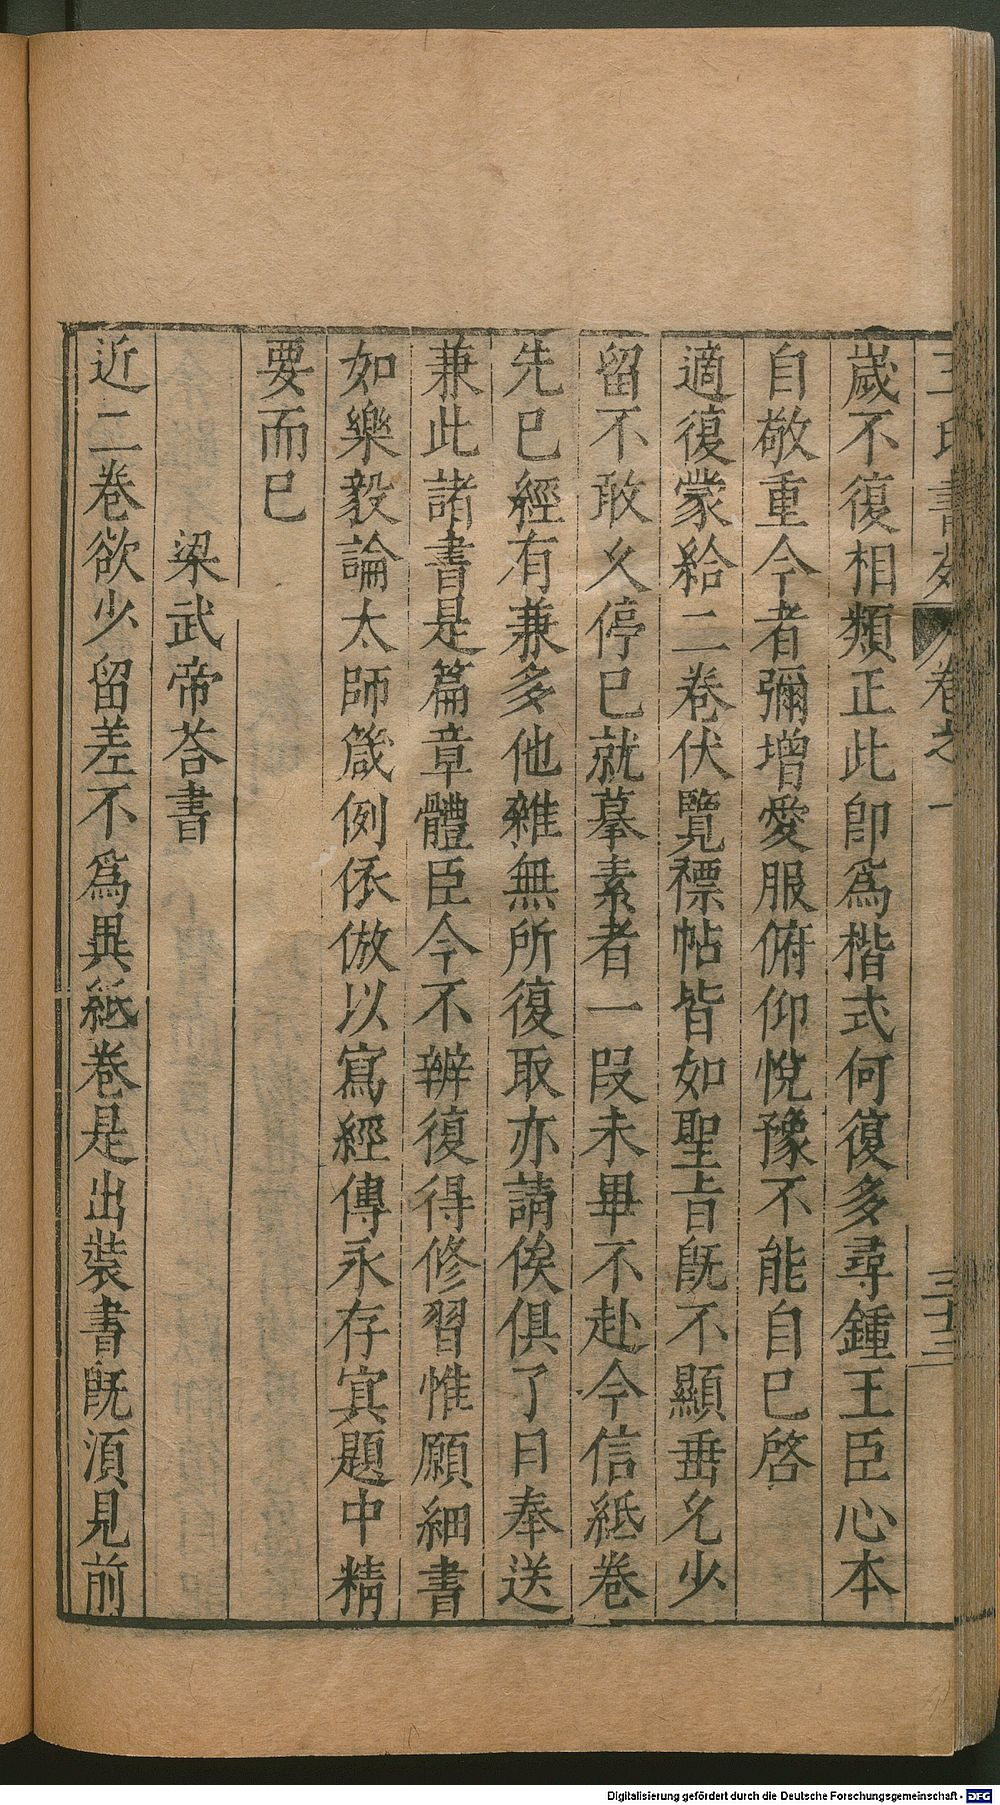 王氏書苑 卷之一 三十三
歲不復相類正此卽爲楷式何復多尋鍾王臣心本
自敬重今者彌增愛服俯仰悅豫不能自已啓
適復蒙給二卷伏覽褾帖皆如聖旨旣不顯垂允少
留不敢久停已就摹素者一叚未畢不赴今信紙卷
先已經有兼多他雜無所復取亦請俟俱了日奉送
兼此諸書是篇章體臣今不辨復得修習惟願細書
如樂毅論太師箴例依倣以寫經傳永存寘題中精
要而已
梁武帝荅書
近二卷欲少留差不爲異紙卷是出裝書旣須見前
Digitalisierung gefördert durch die Deutsche Forschungsgemeinschaft - DFG